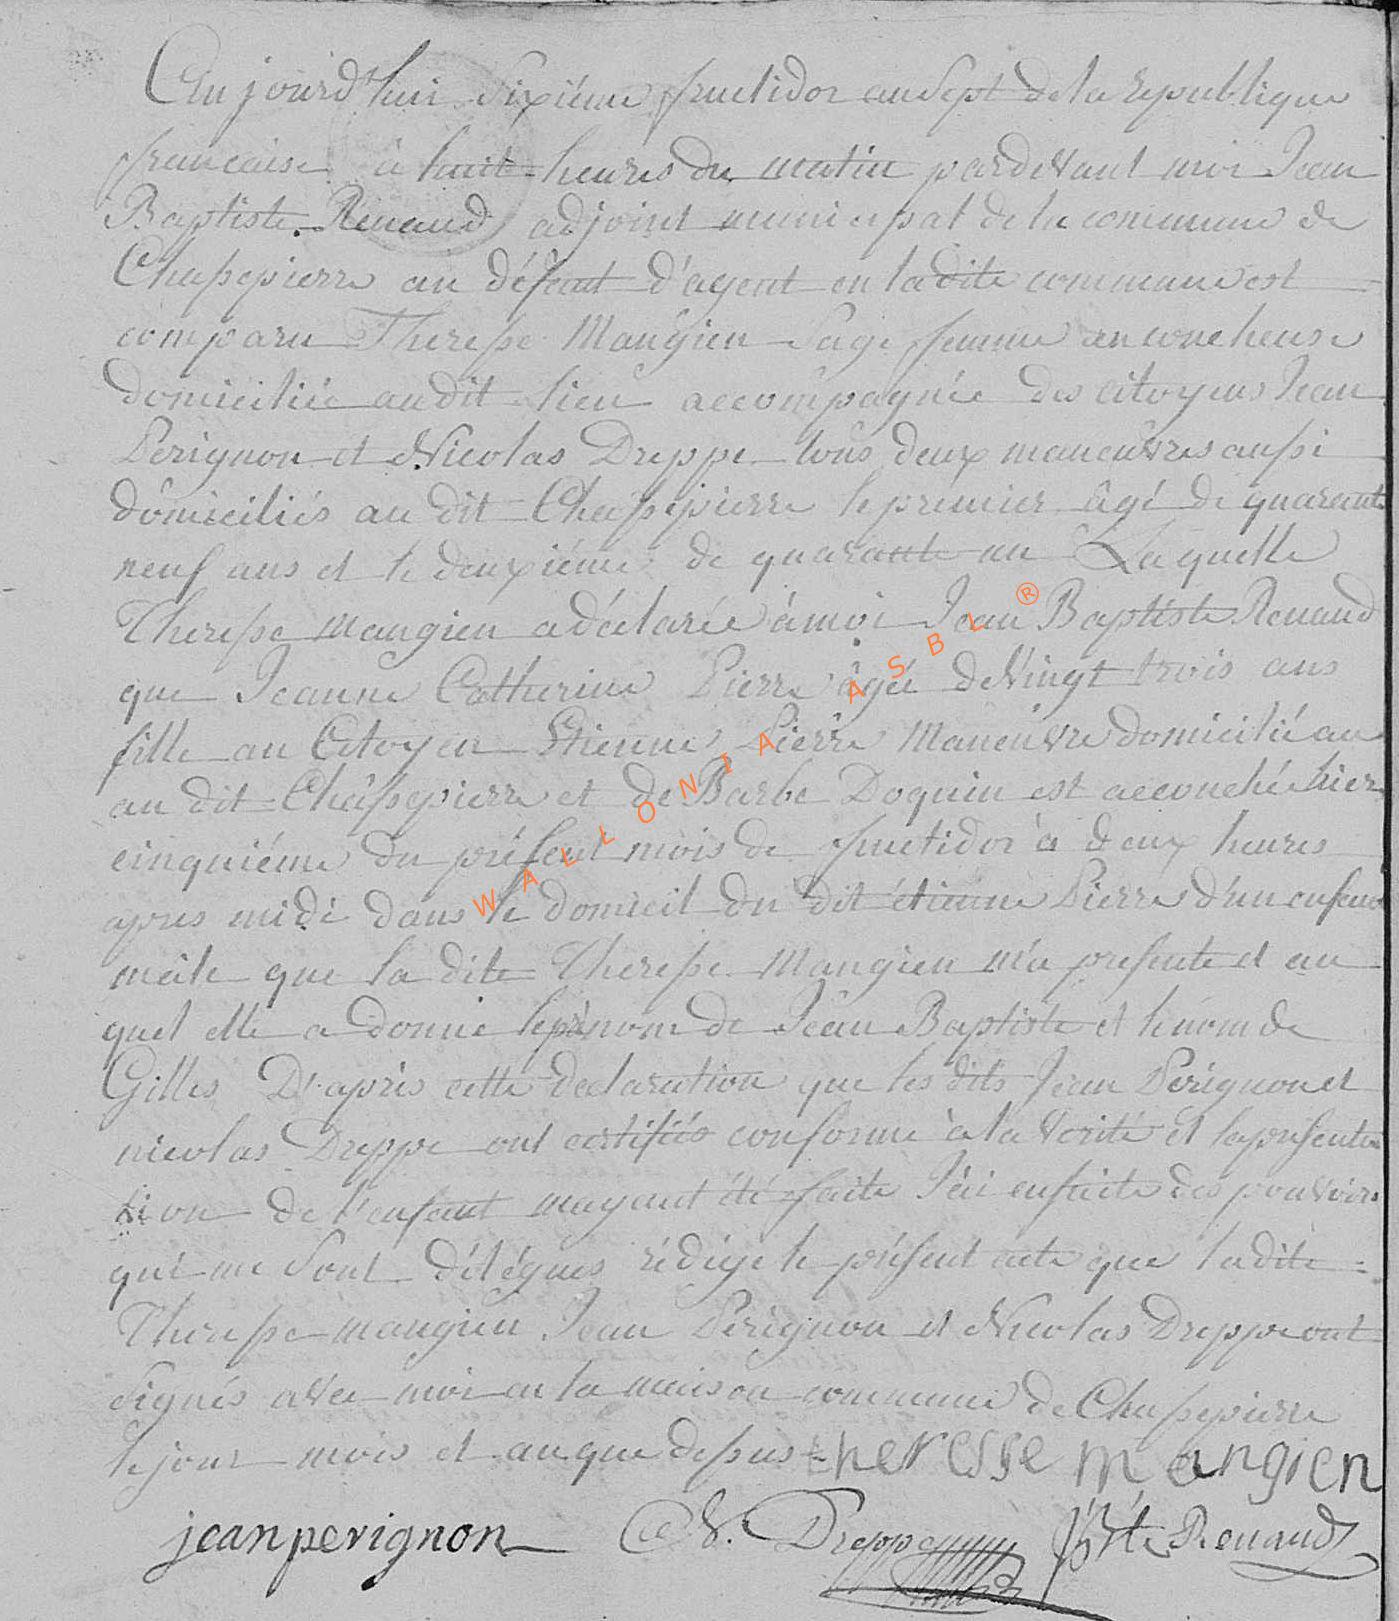 Aujourd'hui sixiéme fructidor an sept de la republique
francaise à huit heures du matin pardevant moi Jean
Baptiste Renaud adjoint municipal de la commune de
Chassepierre au défaut d'agent en la dite commune est
comparu Theresse Mangien sage femme an coucheuse
domiciliée audit lieu accompagnée des citoyens Jean
Perignon et Nicolas Dreppe tous deux manœuvres aussi
domiciliés au dit Chassepierre le premier âgé de quarante
neuf ans et le deuxiéme de quarante un Laquelle
Theresse mangien a déclarée à moi Jean Baptiste Renaud
que Jeanne Catherine Pierre âgée de vingt trois ans
fille au Citoyen Etienne Pierre Manœuvre domicilié au
au dit Chassepierre et de Barbe Doquin est accouchée hier
cinquiéme du présent mois de fructidor à deux heures
apres midi dans le domicil du dit étienne Pierre d'un enfant
mâle que la dite Theresse Mangien m'a presenté et au
quel elle a donné le prénom de Jean Baptiste et le nom de
Gilles D'après cette declaration que les dits Jean Perignon et
nicolas Dreppe ont certifiés conforme à la verité et la présenta
tion de l'enfant mayant été faite J'ai en suite des pouvoirs
qui me sont délégués rédigé le présent acte que ladite
Theresse mangien Jean Perignon et Nicolas Dreppe ont
signés avec moi en la maison commune de Chassepierre
le jour mois et an que dessus theresse mangien
jean perignon Dreppe Bte Renaud
WALLONIA ASBL ®